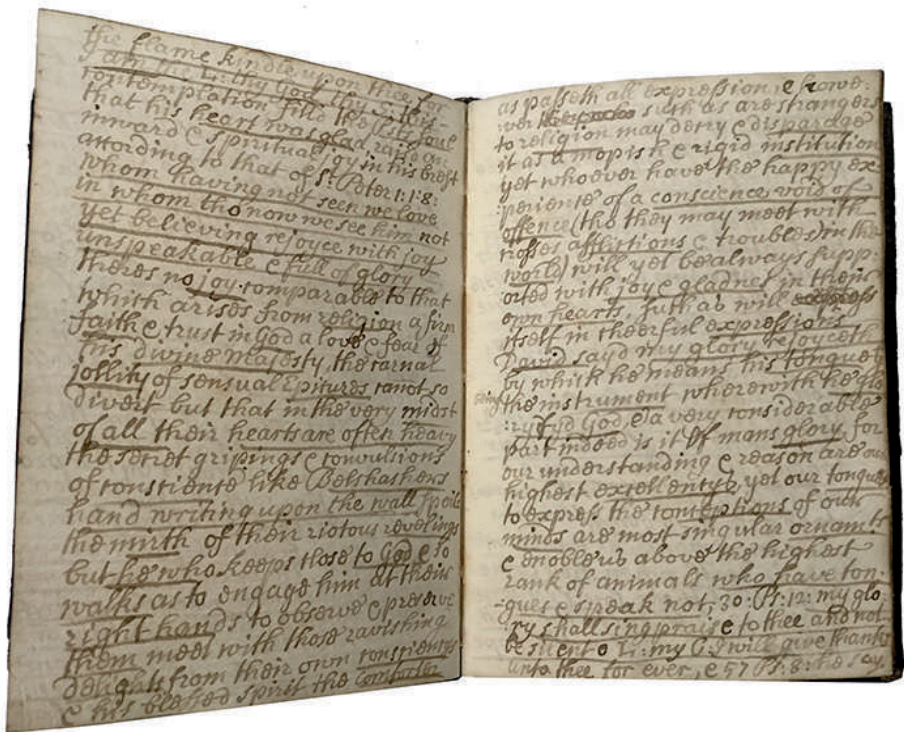 the flame kindle upon the
I am the Ld: thy God, this
contemplation fill'd the Psts soul
that his heart was glad rais'd an
inward & spiritual joy in his brest
according to that of St. Peter 1:1:8:
whom having not seen we love
in whom tho now we see him not
yet believing rejoyce with joy
unspeakable & full of glory
theres no joy comparable to that
which arises from religion a firm
faith & trust in God a love & fear of
his divine majesty, the carnal
jollity of sensual Epicures canot so
divert but that in the very midst
of all their hearts are often heavy
the secret gripings & convulsions
of conscience like Belshashers
hand writing upon the wall spoile
the mirth of their riotous revelings
but he who keeps close to God & so
walks as to engage him at their
right hands to observe & preserve
them meet with those ravishing
delights from their own consciences
& his blessed spirit the Comforter
as passeth all expression, & howe:
ver such as are strangers
to religion may decry & disparage
it as a mopish & rigid institution
yet whoever have the happy ex
perience of a conscience void of
offence (tho they may meet with
crosses afflictions & troubles) in the
world) will yet be always supp:
orted with joy & gladnes in their
own hearts, such as will express
itself in cheerful expressions
David sayd my glory rejoyceth
by which he means his tongue
being the instrument wherewith he glo
:ryfyd God, & a very considerable
part indeed is it Of mans glory, for
our understanding & reason are our
highest excellencys, yet our tongues
to express the conceptions of our
minds are most singular ornamts
& enoble us above the highest
rank of animals who have ton,
:gues & speak not, 30: Ps: 12: my glo:
ry shall sing praise to thee and not
be silent o Ld: my G: I will give thanks
unto thee for ever, & 57 Ps: 8: he say